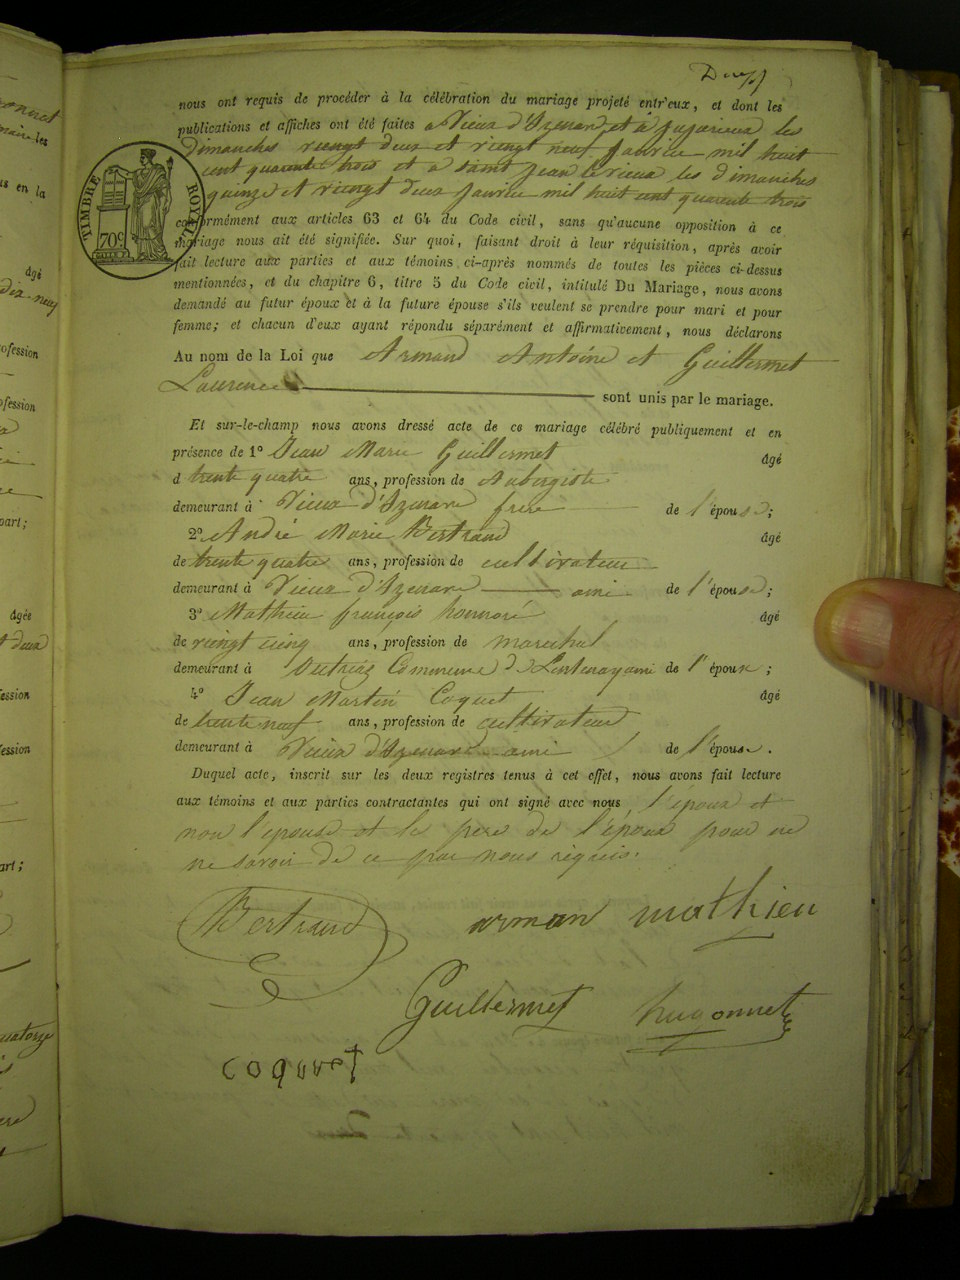 nous ont requis de procéder à la célébration du mariage projeté entr'eux, et dont les
publications et affiches ont été faites a Vieux d'Izenave et à Jujurieux les
dimanches vingt deux et vingt neuf Janvier mil huit
cent quarante trois et a Saint Jean le vieux les dimanches
quinze et vingt deux Janvier mil huit cent quarante trois
conformément aux articles 63 et 64 du Code civil, sans qu'aucune opposition à ce
mariage nous ait été signifiée. Sur quoi, faisant droit à leur réquisition, après avoir
fait lecture aux parties et aux témoins ci-après nommés de toutes les pièces ci-dessus
mentionnées, et du chapitre 6, titre 5 du Code civil, intitulé Du Mariage, nous avons
demandé au futur époux et à la future épouse s'ils veulent se prendre pour mari et pour
femme; et chacun d'eux ayant répondu séparément et affirmativement, nous déclarons
Au nom de la Loi que Armand Antoine et Guillermet
Laurence sont unis par le mariage.
Et sur-le-champ nous avons dressé acte de ce mariage célébré publiquement et en
présence de 1º Jean Marie Guillermet âgé
d trente quatre ans, profession de Aubergiste
demeurant à Vieux d'Izenave frere de l'épouse;
2º André Marie Bertrand âgé
de trente quatre ans, profession de cultivateur
demeurant à Vieux d'Izenave ami de l'épouse;
3º Mathieu françois honnoré âgé
de vingt cinq ans, profession de marechal
demeurant à Outriaz Commune de Lentenay ami de l'épouse;
4º Jean Martin Coquet âgé
de trente neuf ans, profession de cultivateur
demeurant à Vieux d'Izenave ami de l'épouse.
Duquel acte, inscrit sur les deux registres tenus à cet effet, nous avons fait lecture
aux témoins et aux parties contractantes qui ont signé avec nous l'époux et
non l'epouse et le pere de l'époux pour ne
ne savoir de ce par nous requis.
Bertrand arman mathieu
Guillermet hugonnet
coquet
TIMBRE ROYAL
70c